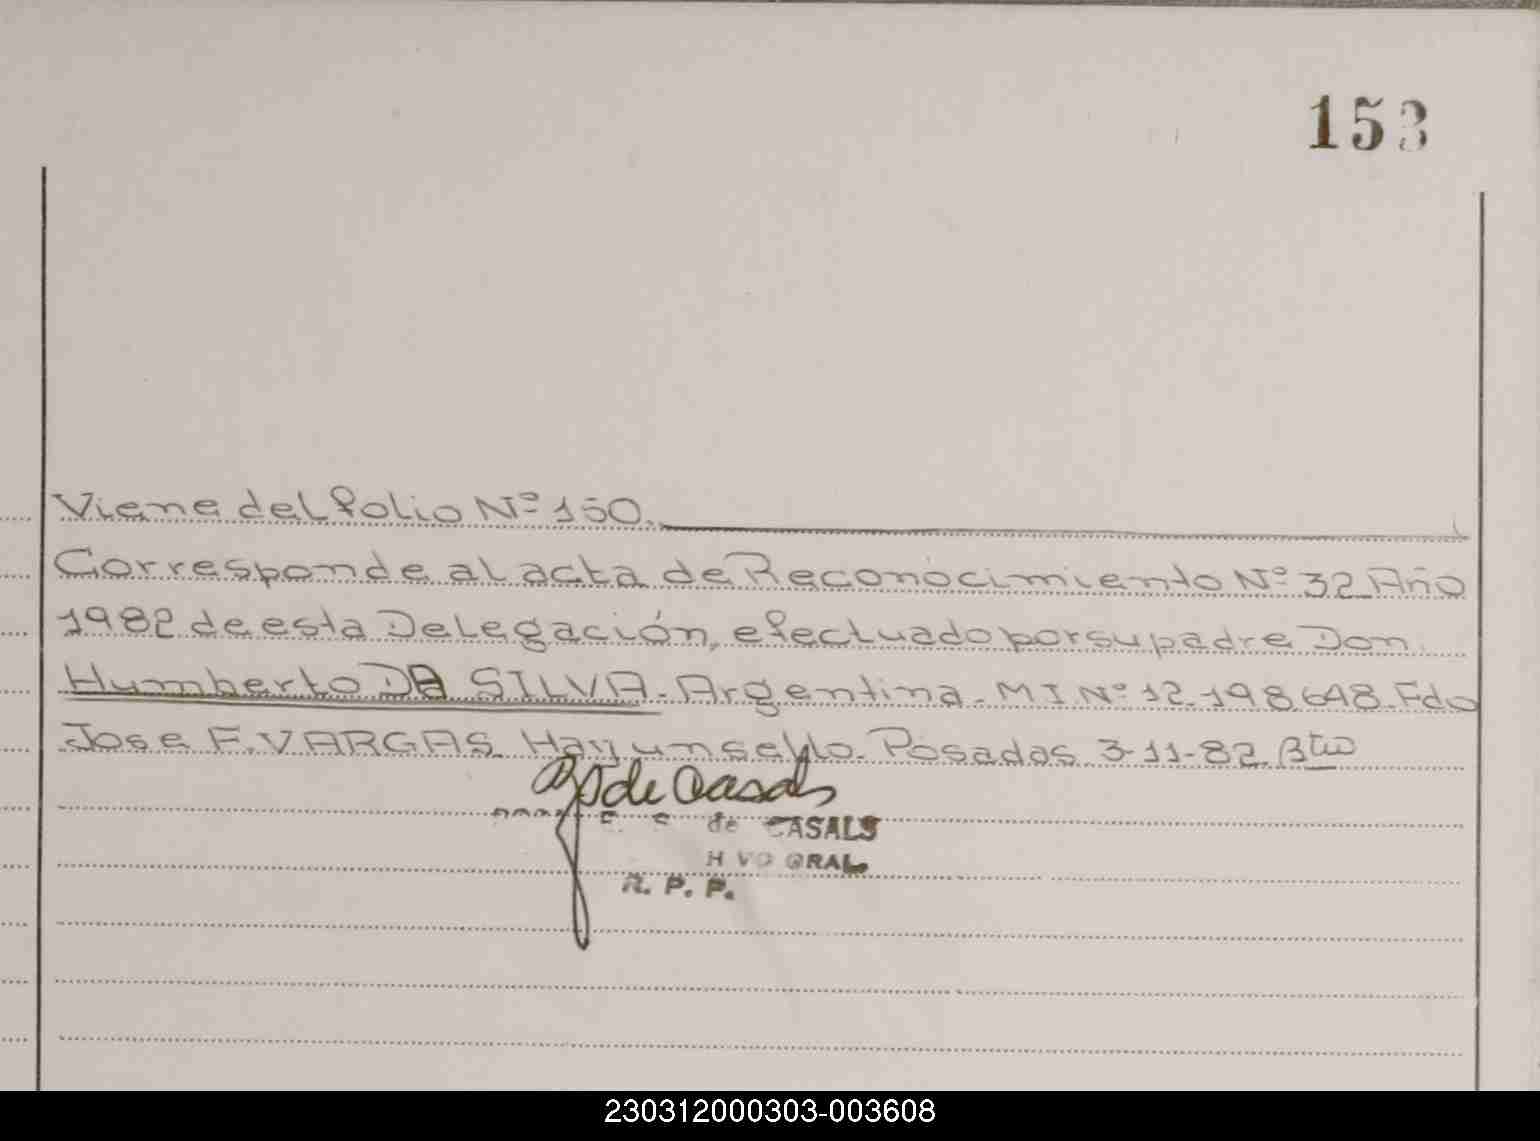 153
Viene del folio Nº 150.
Corresponde al acta de Reconocimiento Nº 32 Año
1982 de esta Delegación, efectuado por su padre Don
Humberto DA SILVA - Argentina - M I Nº 12.198.648. Fdo
Jose F. VARGAS. Hay un sello. Posadas 3-11-82. Btto
de Casals
E. S. de CASALS
H VO GRAL
R. P. P.
230312000303-003608